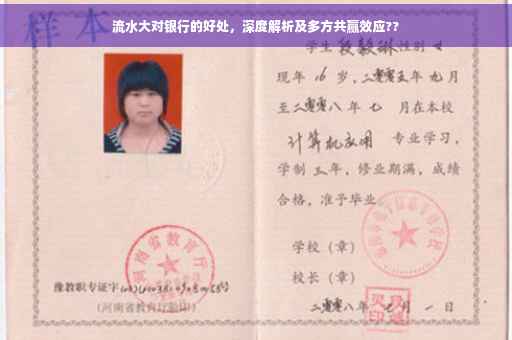 流水大对银行的好处，深度解析及多方共赢效应??
样本
学生段毅琳性别女
现年16岁，二零零五年九月
至二零零八年七月在本校
计算机应用 专业学习，
学制三年，修业期满，成绩
合格，准予毕业。
学校（章）
校长（章）
二零零八年七月一日
河南省教育厅
豫教职专证字
(河南省教育厅验印)